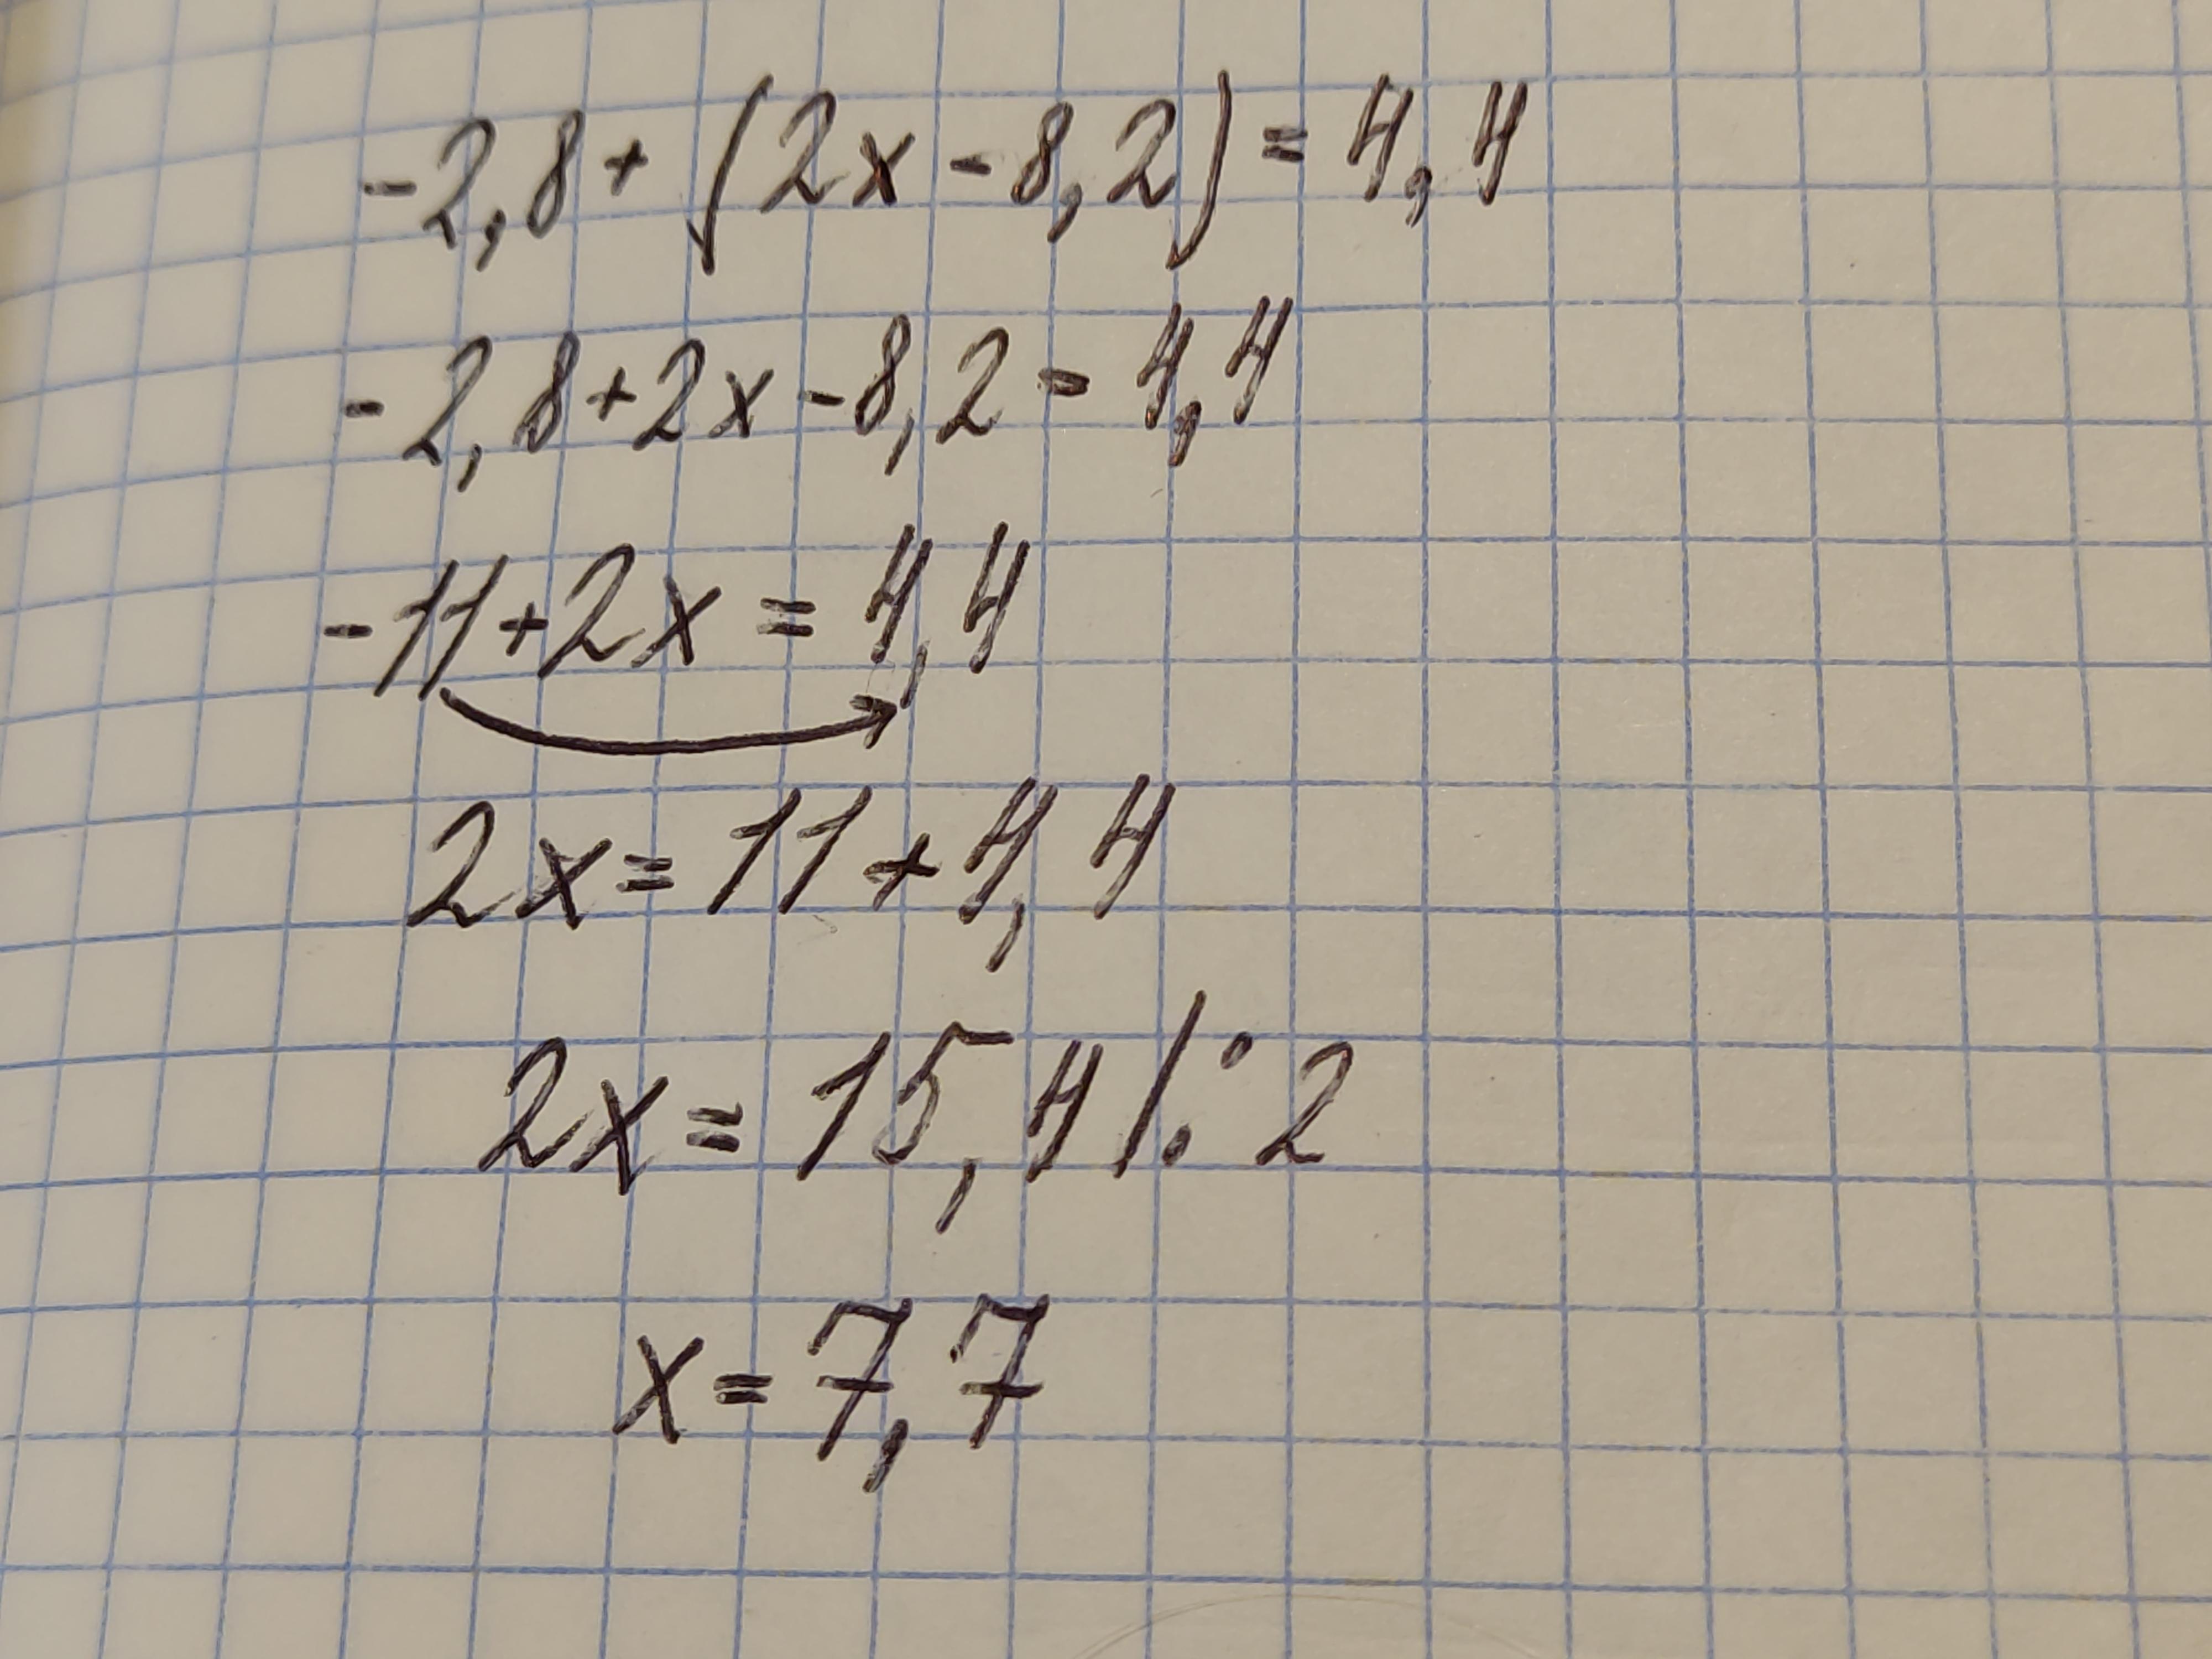 -2,8+(2x-8,2)=4,4
-2,8+2x-8,2=4,4
-11+2x=4,4
2x=11+4,4
2x=15,4|:2
x=7,7